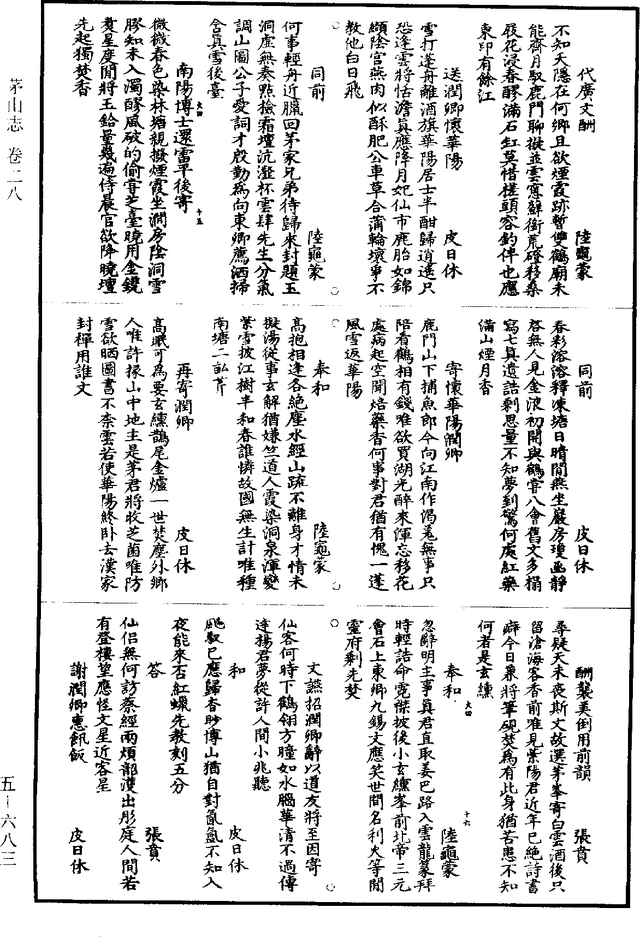 代廣文酬　陸龜蒙
不知天隱在何鄉且欲煙霞跡暫雙鶴廟未
能齋月馭鹿門聊擬並雲窻蘚銜荒磴移桑
屐花浸春醪滿石缸莫惜槎頭容釣伴也應
東印有餘江
送潤卿懷華陽　皮日休
雪打蓬舟離酒旗華陽居士半酣歸逍遙只
恐逢雲將恬澹真應降月妃仙市鹿胎如錦
纈陰宮燕肉似酥肥公車草合蒲輪壞爭不
教他白日飛
同前　陸龜蒙
何事輕舟近臘回茅家兄弟待歸來封題玉
洞虛無奏點檢霜壇沆瀣杯雲肆先生分氣
調山圖公子愛詞才殷勤為向東卿薦洒掃
含真雪後臺
南陽博士還雷平後寄
微微春色染林塘親撥煙霞坐澗房陰洞雪
膠知未入濁醪風破的偷嘗芝臺曉用金鐺
煑星度閒將玉鉿量幾遍侍晨官欲降曉壇
先起獨焚香
茅山志　卷二八
同前　皮日休
春彩溶溶釋凍塘日晴閒燕坐巖房瓊函靜
啓無人見金液初開與鶴嘗八會舊文多搨
寫七真遺誥剩思量不知夢到驚何處紅藥
滿山煙月香
寄懷華陽潤卿
鹿門山下捕魚郎今向江南作渴羌無事只
陪看鶴相有錢唯欲買湖光醉來渾忘移花
處病起空聞焙藥香何事對君猶有愧一蓬
風雪返華陽
奉和　陸龜蒙
高抱相逢各絕塵水經山䟽不離身才情未
擬湯從事玄解猶嫌竺道人霞染洞泉渾變
紫雪披江樹半和春誰憐故國無生計唯種
南塘二畝芹
再寄潤卿　皮日休
高眠可為要玄纁鵲尾金爐一世焚塵外鄉
人唯許掾山中地主是茅君將收芝菌唯防
雪欲晒圖書不柰雲若使華陽終卧去漢家
封禪用誰文
酬襲美倒用前韻　張賁
尋疑天未喪斯文故選茅峯寄白雲酒後只
留滄海客香前唯見紫陽君近年已絕詩書
癖今日兼將筆硯焚為有此身猶苦患不知
何者是玄纁
奉和　陸龜蒙
忽辭明主事真君直取姜巴路入雲龍篆拜
時輕誥命霓襟披後小玄纁峯前北帝三元
會石上東卿九錫文應笑世間名利火等閒
靈府剩先焚
文讌招潤卿辭以道友將至因寄
仙客何時下鶴翎方瞳如水腦華清不過傳
達楊君夢從許人間小兆聽
和　皮日休
飈馭已應歸杳眇博山猶自對氤氳不知入
夜能來否紅蠟先教刻五分
答　張賁
仙侶無何訪蔡經兩煩韶濩出彤庭人間若
有登樓望應怪文星近客星
謝潤卿惠飿飯　皮日休
五—六八三